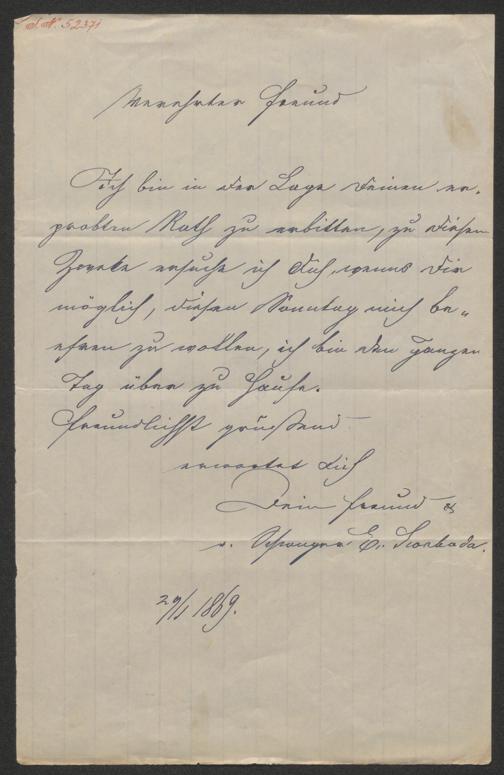 J. N. 52371
Verehrter Freund
Ich bin in der Lage Deinen er-
probten Rath zu erbitten, zu diesem
Zwecke ersuche ich Dich, wenns Dir
möglich, diesen Sonntag mich be-
ehren zu wollen, ich bin den ganzen
Tag über zu Hause.
Freundlichst grüssend
erwartet Dich
Dein Freund &
v. Schwager E. Swoboda.
29/1 1869.